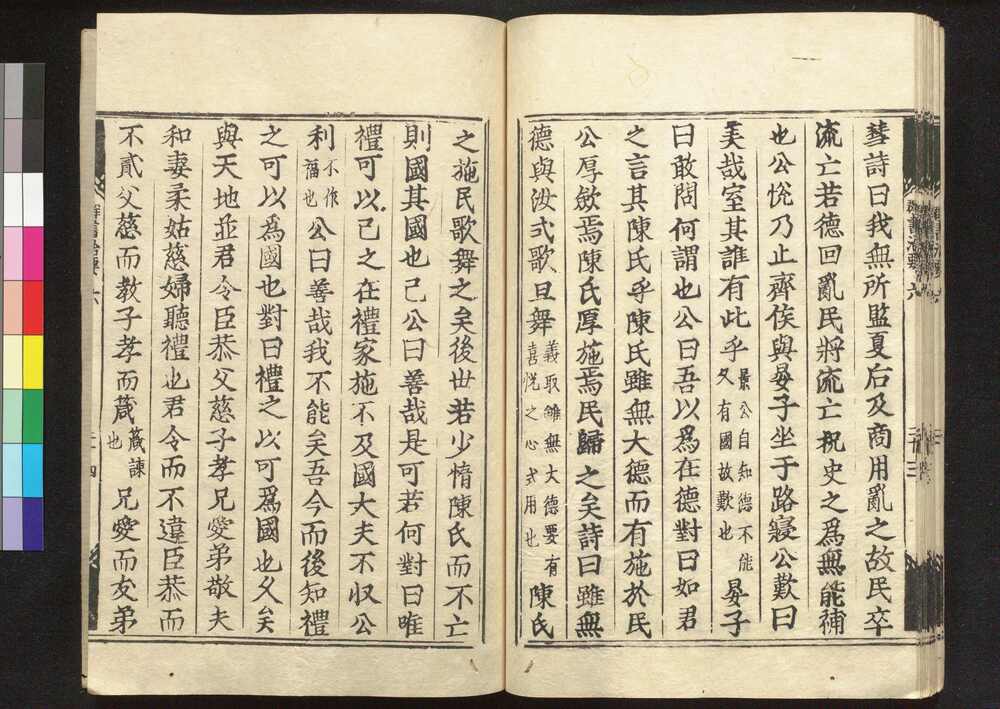 彗詩曰我無所監夏后及商用亂之故民卒
流亡若德回亂民將流亡祝史之為無能補
也公悅乃止齊侯與晏子坐于路寢公歎曰
美哉室其誰有此乎景公自知德不能久有國故歎也晏子
曰敢問何謂也公曰吾以為在德對曰如君
之言其陳氏乎陳氏雖無大德而有施於民
公厚斂焉陳氏厚施焉民歸之矣詩曰雖無
德與汝式歌且舞義取雖無大德要有喜悅之心式用也陳氏
之施民歌舞之矣後世若少惰陳氏而不亡
則國其國也已公曰善哉是可若何對曰唯
禮可以已之在禮家施不及國大夫不收公
利不作福也公曰善哉我不能矣吾今而後知禮
之可以為國也對曰禮之以可為國也久矣
與天地並君令臣恭父慈子孝兄愛弟敬夫
和妻柔姑慈婦聽禮也君令而不違臣恭而
不貳父慈而教子孝而箴箴諫也兄愛而友弟
群書治要 六